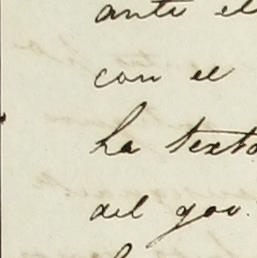 ante el
con el
ha texto
del gov.